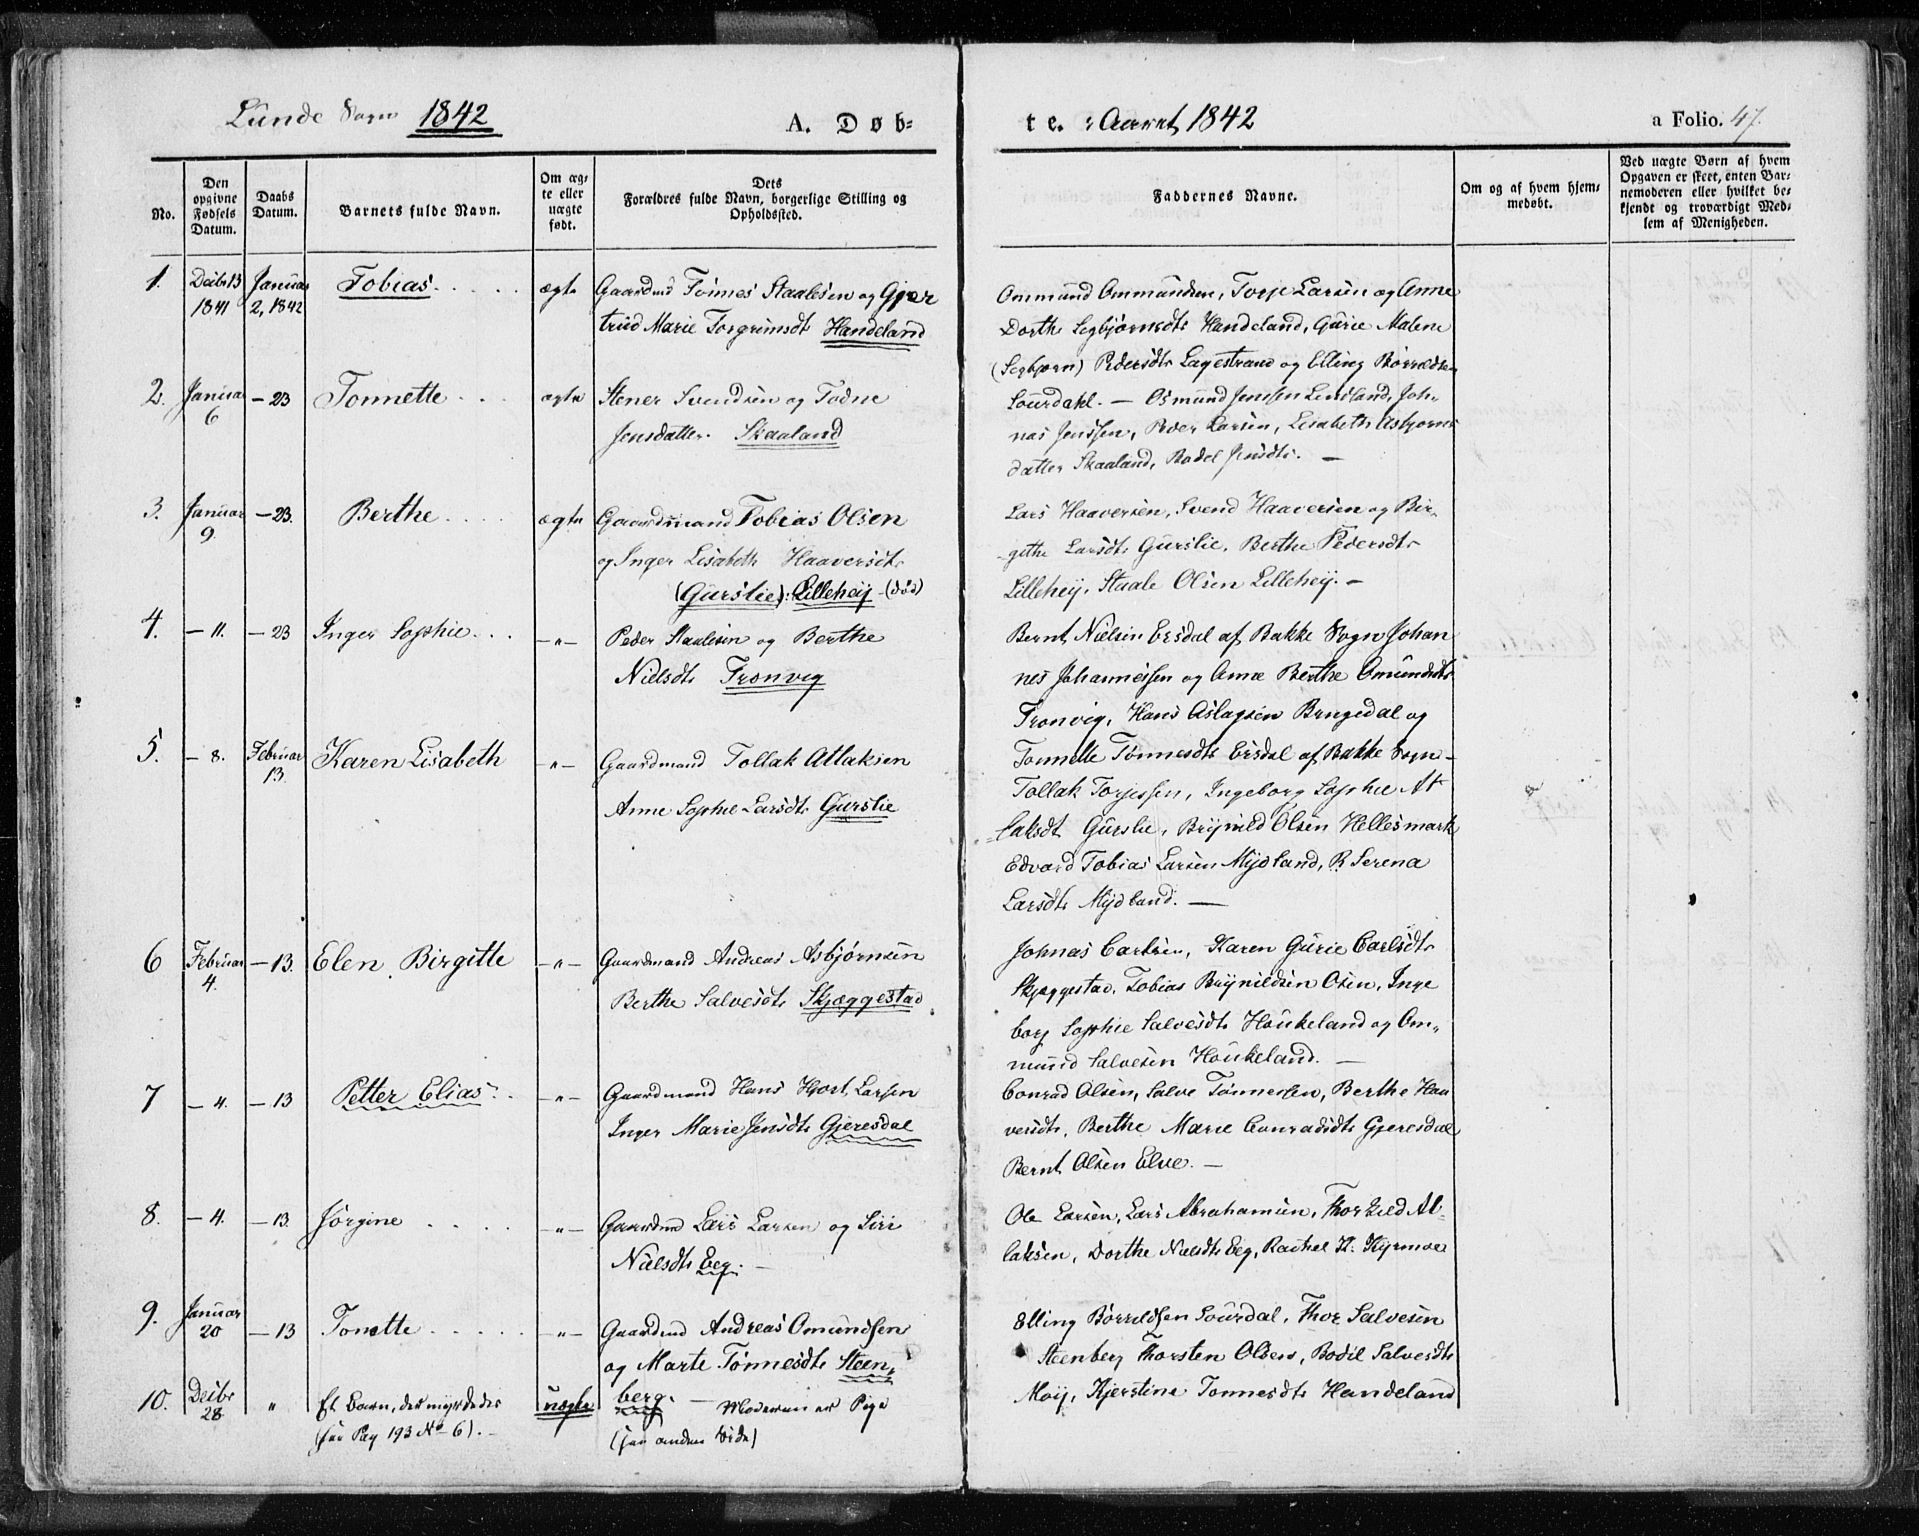 Lunde Sogn 1842
A. Døb-
No.
Den opgivne Fødsels Datum.
Daabs Datum.
Barnets fulde Navn.
Om ægte eller uægte født.
Dets Forældres fulde Navn, borgerlige Stilling og Opholdssted.
1. Decbr 13 1841 Januar 2, 1842 Tobias ægte Gaardmd Tønnes Staalesen og Gjer
trud Marie Torgrimsdt Handeland
2. Januar 6 - 23 Tonnette ægte Stener Svendsen og Todne
Jensdatter. Skaaland
3. Januar 9 - 23. Berthe ægte Gaardmand Tobias Olsen
og Inger Lisabeth Haaversdt
(Gurslie): Lilleheij (død)
4. - 11. - 23 Inger Sophie -"- Peder Staalesen og Berthe
Nielsdt Tronvig
5. - 8. Februar 13. Karen Lisabeth -"- Gaardmand Tollak Atlaksen
Anne Sophie Larsdt Gurslie
6 Februar 4. - 13. Elen Birgitte -"- Gaardmand Andreas Asbjørnsen
Berthe Salvesdt Skjæggestad
7 - 4. - 13 Petter Elias -"- Gaardmand Hans Hjort Larsen
Inger Marie Jensdt Gjeresdal
8. - 4. - 13. Jørgine -"- Gaardmd Lars Larsen og Siri
Nielsdt Eeg. -
9. Januar 20 - 13 Tonette -"- Gaardmd Andreas Omundsen
og Marte Tønnesdt Steen-
10. Decbr 28 " Et Barn, der myrdedes uægte berg. - Moderen er Pige
(see Pag 193 No 6). - (see anden Side)
te. : Aaret 1842
a Folio. 47.
Faddernes Navne.
Om og af hvem hjemmedøbt.
Ved uægte Børn af hvem Opgaven er skeet, enten Barnemoderen eller hvilket bekjendt og troværdigt Medlem af Menigheden.
Ommund Ommundsen, Torje Larsen og Anne
Dorth Segbjørnsdt Handeland, Gurie Malene
(Segbjørn) Pedersdt Lagestrand og Elling Børrildsen
Sourdahl. - Osmund Jenssen Linland, Joh-
nas Jenssen, Peder Larsen, Lisabeth Asbjørns
datter Skaaland, Bodel Jensdt. -
Lars Haaversen, Svend Haaversen og Bir-
gethe Larsdt Gurslie, Berthe Pedersdt
Lillehey, Staale Olsen Lillehey. -
Bernt Nielsen Ersdal af Bakke Sogn Johan
nes Johannessen og Anne Berthe Omundsdt
Tronvig, Hans Aslagsen Bringedal og
Tonnette Tønnesdt Ersdal af Bakke Sogn -
Tollak Torjessen, Ingeborg Sophie At
laksdt Gurslie, Brynild Olsen Hellesmark
Edvard Tobias Larsen Mydland, B. Serena
Larsdt Mydland. -
Johnas Carlsen, Karen Gurie Carlsdt
Skjæggestad, Tobias Brynildsen Osen, Inge
borg Sophie Salvesdt Houkeland og Om-
mund Salvesen Houkeland. -
Conrad Olsen, Salve Tønnessen, Berthe Haa
versdt, Berthe Marie Conradsdt Gjeresdal
Bernt Olsen Elve. -
Ole Larsen, Lars Abrahamsen, Thorkild At-
laksen, Dorthe Nielsdt Eeg, Rachel K. Kyrmoe
Elling Børrildsen Sourdal, Thor Salvesen
Steenberg Thorsten Olsen, Bodil Salvesdt
Moij, Kjerstine Tonnesdt Handeland